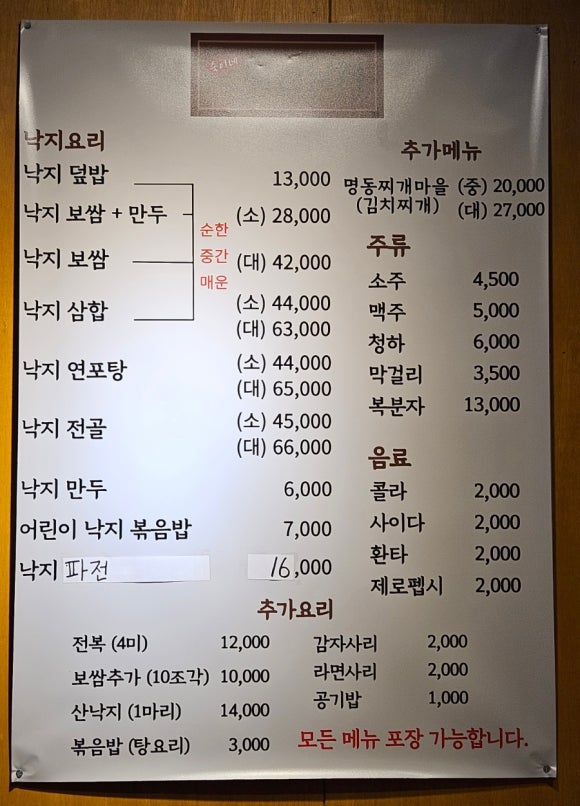 낙지요리
낙지 덮밥 13,000
낙지 보쌈 + 만두 (소) 28,000
낙지 보쌈 (대) 42,000
순한
중간
매운
낙지 삼합 (소) 44,000
(대) 63,000
낙지 연포탕 (소) 44,000
(대) 65,000
낙지 전골 (소) 45,000
(대) 66,000
낙지 만두 6,000
어린이 낙지 볶음밥 7,000
낙지 파전 16,000
추가메뉴
명동찌개마을 (중) 20,000
(김치찌개) (대) 27,000
주류
소주 4,500
맥주 5,000
청하 6,000
막걸리 3,500
복분자 13,000
음료
콜라 2,000
사이다 2,000
환타 2,000
제로펩시 2,000
추가요리
전복 (4미) 12,000
보쌈추가 (10조각) 10,000
산낙지 (1마리) 14,000
볶음밥 (탕요리) 3,000
감자사리 2,000
라면사리 2,000
공기밥 1,000
모든 메뉴 포장 가능합니다.